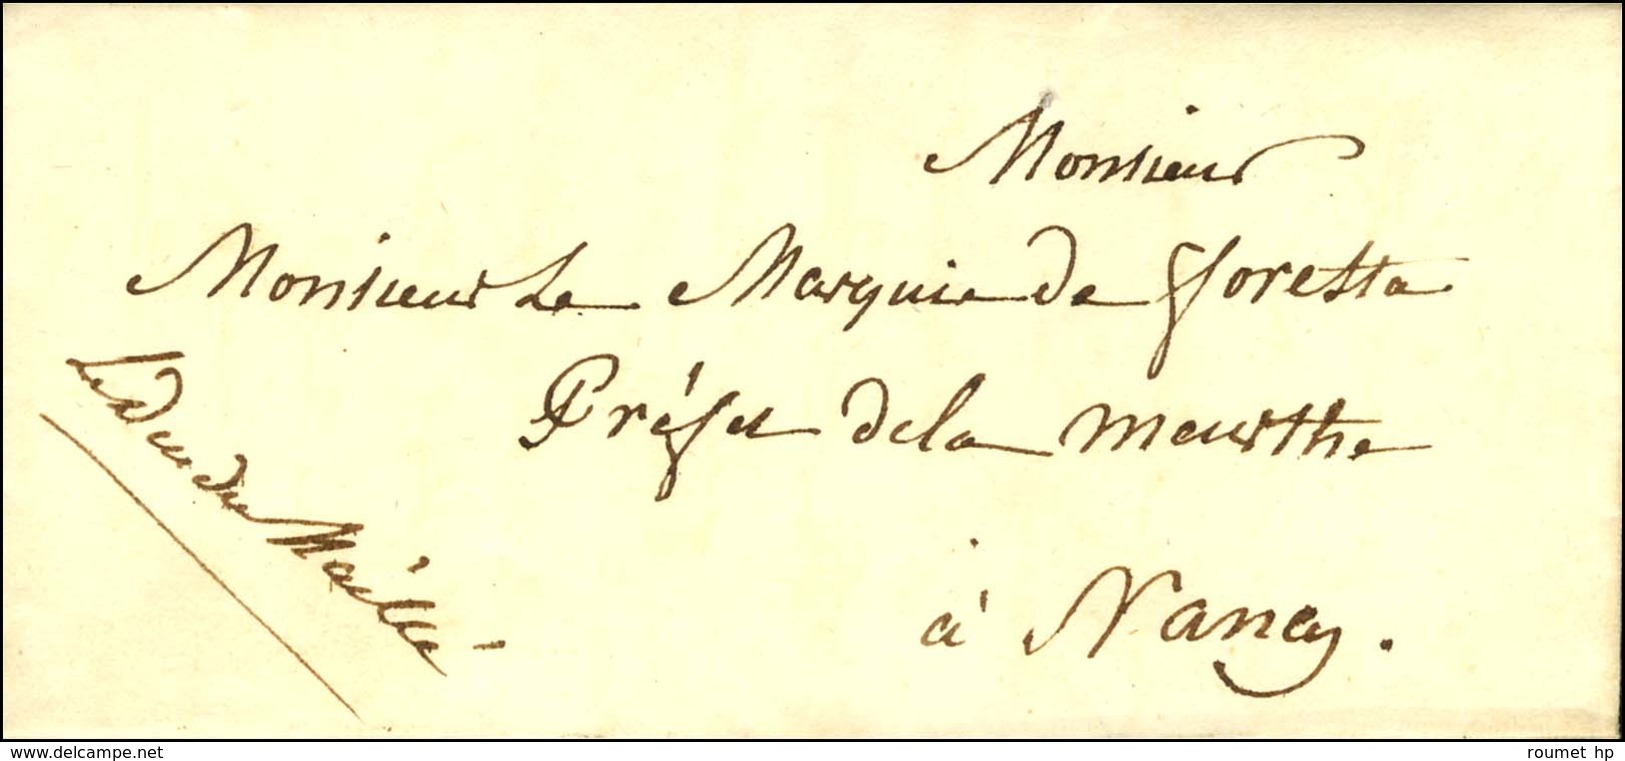 Monsieur
Monsieur Le Marquis de fforesta
Préfet de la Meurthe
à Nancy.
Le Duc de Maillé
delcampe.net
roumet hp